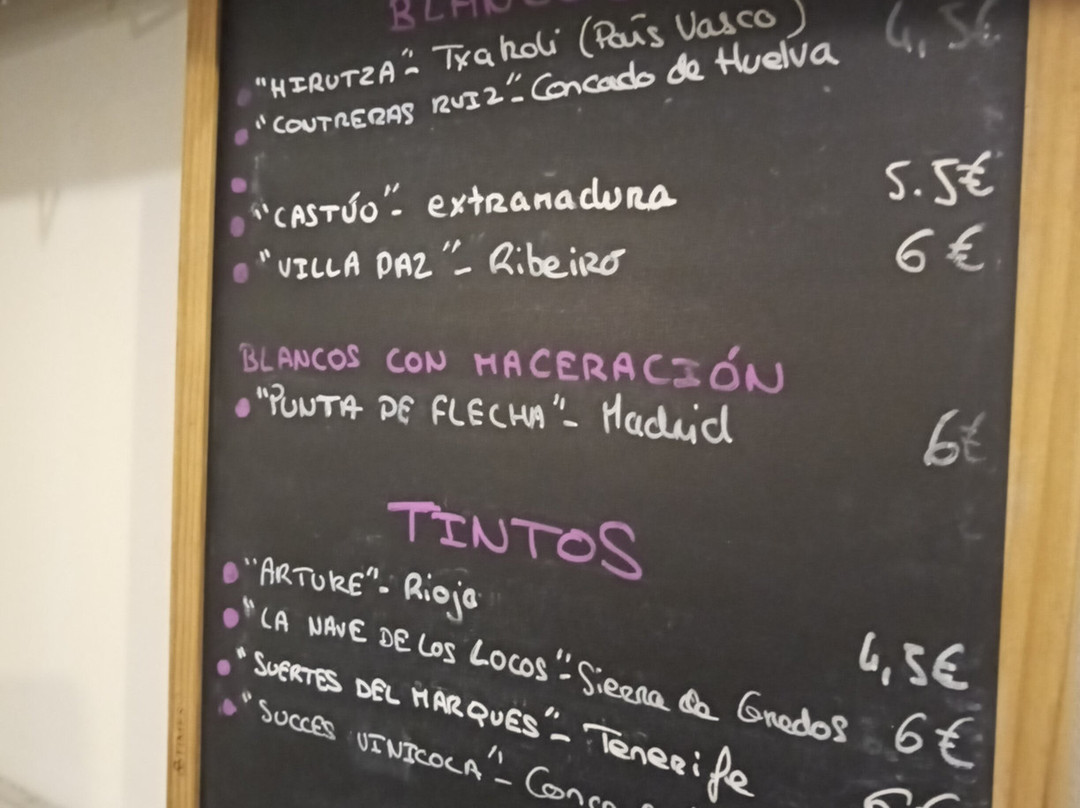 "HIRUTZA"- Txakoli (País Vasco) 4,5€
"CONTRERAS RUIZ"- Concado de Huelva
"CASTÚO"- extramadura 5.5€
"VILLA PAZ"- Ribeiro 6€
BLANCOS CON MACERACIÓN
"PUNTA DE FLECHA"- Madrid 6€
TINTOS
"ARTUKE"- Rioja 4,5€
"LA NAVE DE LOS LOCOS"- Sierra de Gredos 6€
"SUERTES DEL MARQUES"- Tenerife
"SUCCES VINICOCA"- Conca